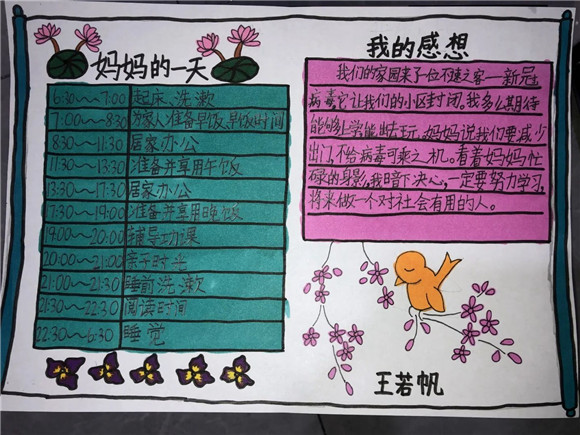 妈妈的一天
6:30~~7:00 起床、洗漱
7:00~~8:30 为家人准备早饭、早饭时间
8:30~~11:30 居家办公
11:30~~13:30 准备并享用午饭
13:30~~17:30 居家办公
17:30~~19:00 准备并享用晚饭
19:00~~20:00 辅导功课
20:00~~21:00 亲子时光
21:00~~21:30 睡前洗漱
21:30~~22:30 阅读时间
22:30~~6:30 睡觉
我的感想
我们的家园来了一位不速之客——新冠
病毒它让我们的小区封闭。我多么期待
能够上学能出去玩。妈妈说我们要减少
出门,不给病毒可乘之机。看着妈妈忙
碌的身影,我暗下决心,一定要努力学习,
将来做一个对社会有用的人。
王若帆